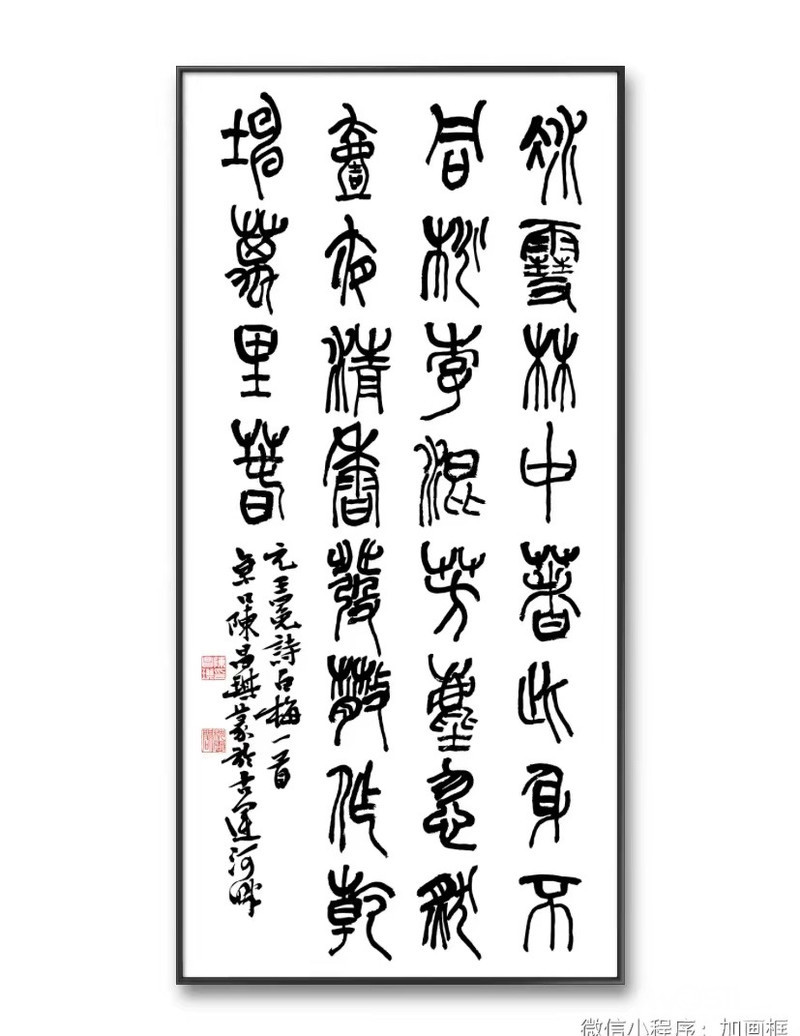 冰雪林中著此身不
同桃李混芳塵忽然
壹夜清香發散作乾
坤萬里春
元王冕詩白梅一首
陳昌篆於古運河畔
微信小程序：加画框